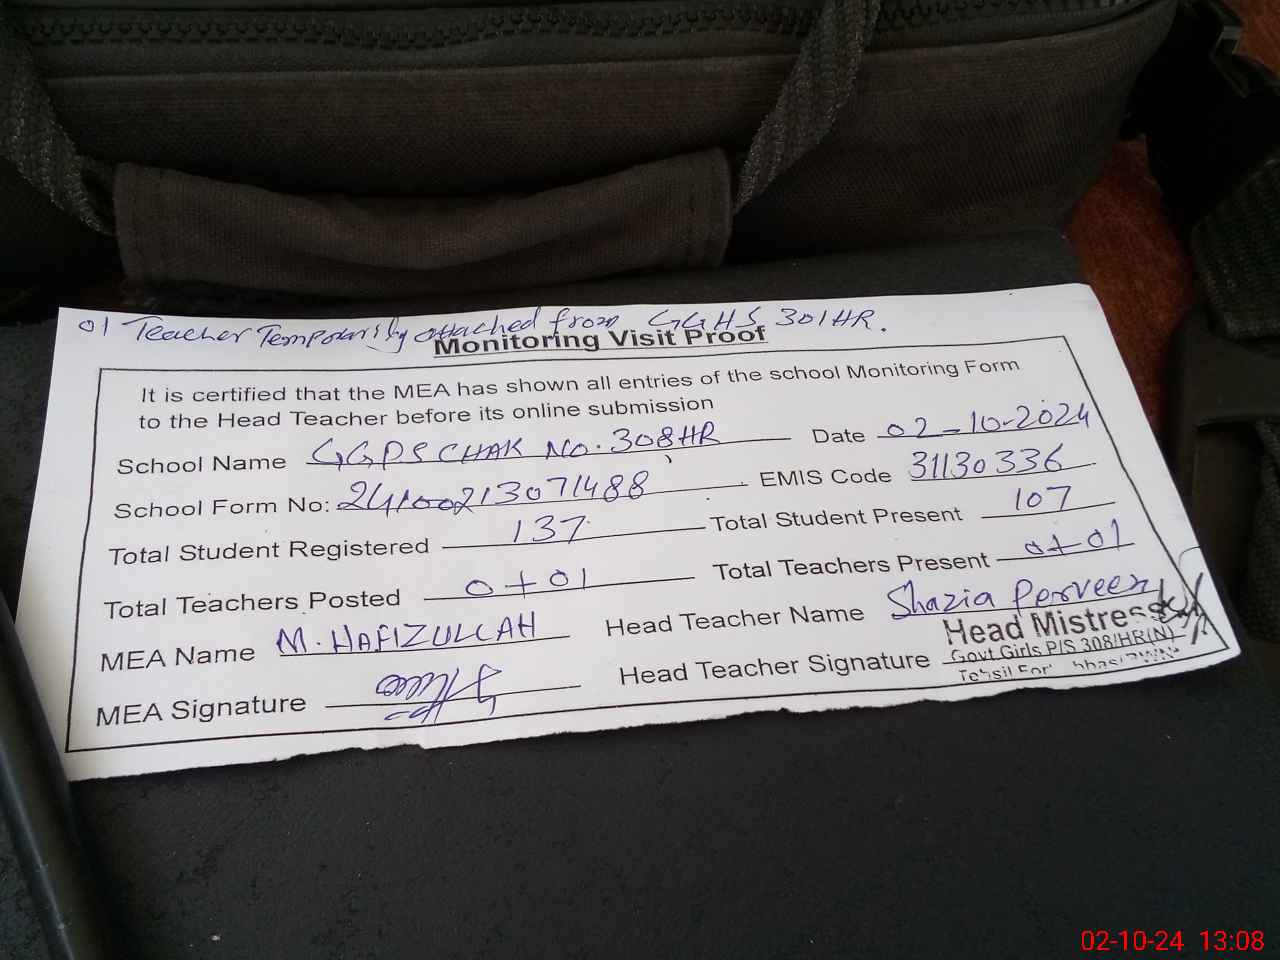 01 Teacher Temporarily attached from GGHS 301HR.
Monitoring Visit Proof
It is certified that the MEA has shown all entries of the school Monitoring Form
to the Head Teacher before its online submission
School Name GGPS CHAK NO. 308HR Date 02-10-2024
School Form No: 24100213071488 EMIS Code 31130336
Total Student Registered 137 Total Student Present 107
Total Teachers Posted 0+01 Total Teachers Present 0+01
MEA Name M. HAFIZULLAH Head Teacher Name Shazia Perveen
MEA Signature Head Teacher Signature
Head Mistress
Govt Girls P/S 308/HR(N)
Tehsil
02-10-24 13:08